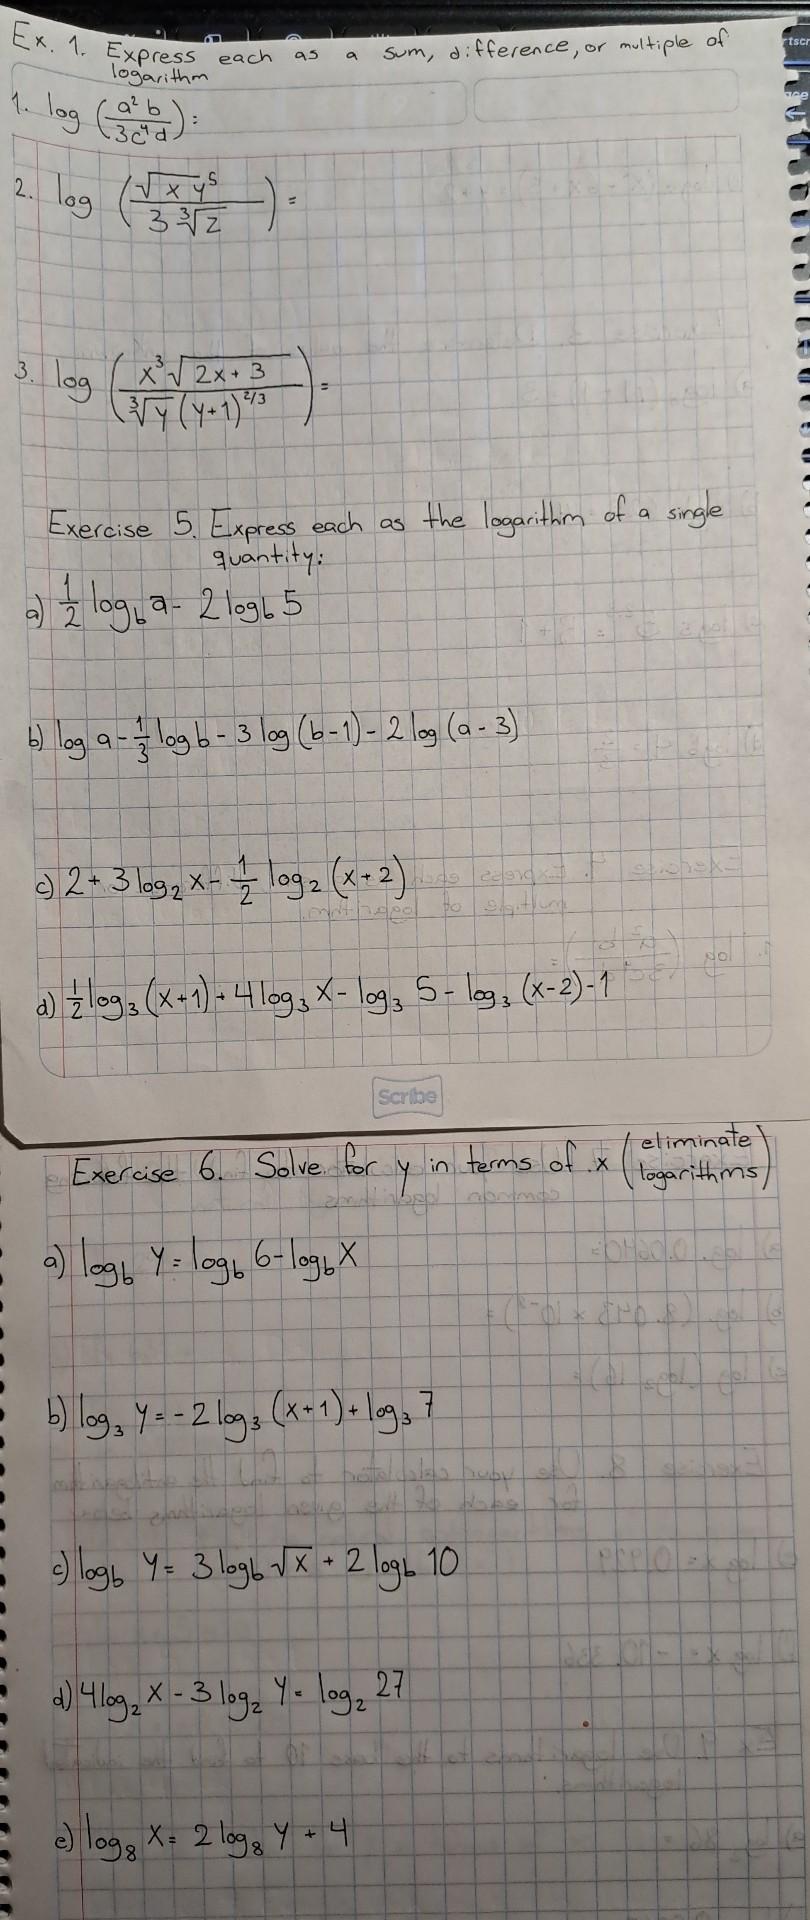 Ex. 1. Express each as a sum, difference, or multiple of
logarithm
1. log (a²b / 3c⁴d) =
2. log (√x y⁵ / 3 ∛z) =
3. log (x³ √(2x+3) / ∛y (y+1)^(2/3)) =
Exercise 5. Express each as the logarithm of a single
quantity:
a) 1/2 log_b a - 2 log_b 5
b) log a - 1/3 log b - 3 log (b-1) - 2 log (a-3)
c) 2 + 3 log₂ x - 1/2 log₂ (x+2)
d) 1/2 log₃ (x+1) + 4 log₃ x - log₃ 5 - log₃ (x-2) - 1
Scribe
Exercise 6. Solve for y in terms of x (eliminate
logarithms)
a) log_b y = log_b 6 - log_b x
b) log₃ y = -2 log₃ (x+1) + log₃ 7
c) log_b y = 3 log_b √x + 2 log_b 10
d) 4 log₂ x - 3 log₂ y = log₂ 27
e) log₈ x = 2 log₈ y + 4